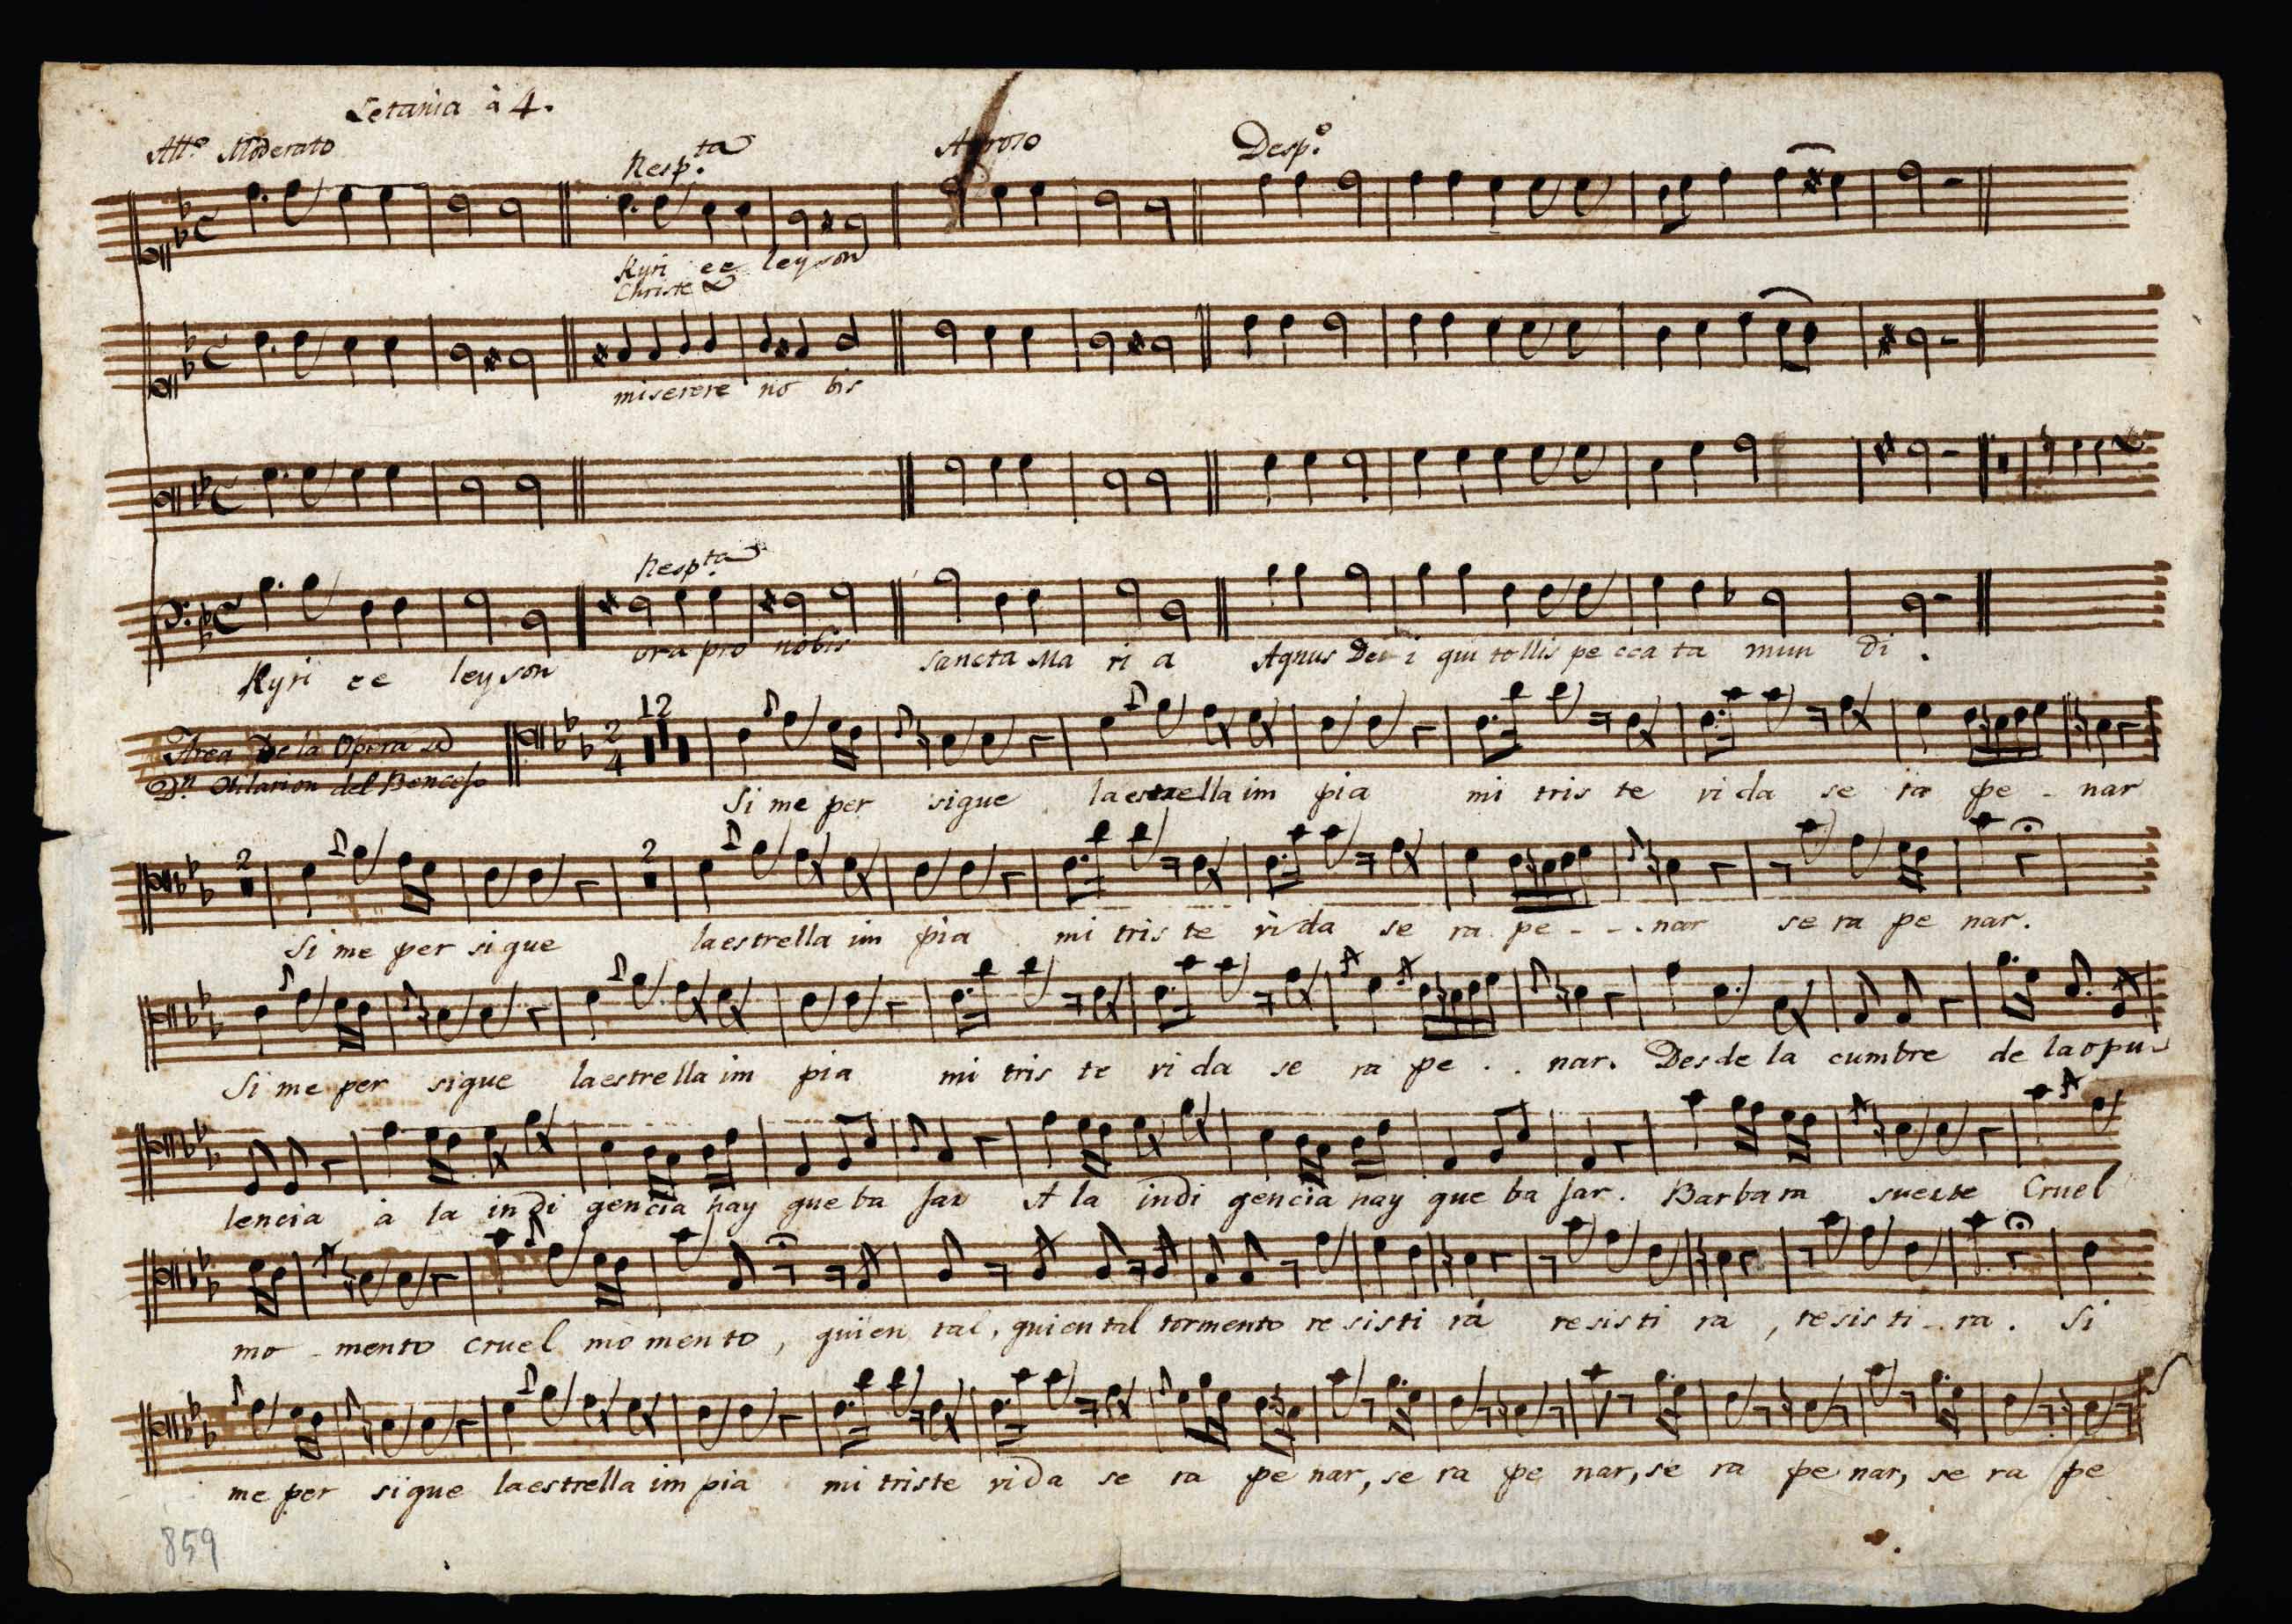 Letania à 4.
All.º Moderato
Resp.ta
Desp.º
Kyri ee leyson
Christe &
miserere no bis
Resp.ta
Kyri ee leyson ora pro nobis sancta Ma ri a Agnus De i qui tollis pe cca ta mun di.
12
Area De la Opera
2 4
Dn. Hilarion del
Si me per sigue la estrella im pia mi tris te vi da se ra pe - nar
2 2
Si me per sigue la estrella im pia mi tris te vi da se ra pe - - - nar se ra pe nar.
Si me per sigue la estrella im pia mi tris te vi da se ra pe . . nar. Desde la cumbre de la opu-
lencia à la indi gencia hay que ba jar A la indi gencia hay que ba jar. Barbara suerte Cruel
mo - mento cruel mo mento, quien tal, quien tal tormento re sisti rá re sis ti ra, re sis ti - ra. Si
me per sigue la estrella im pia mi triste vi da se ra pe nar, se ra pe nar, se ra pe nar, se ra pe
859